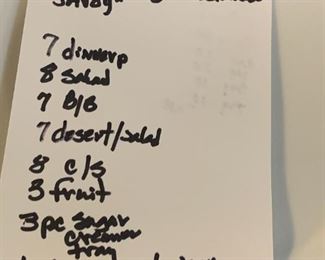 7 dinnerp
8 salad
7 B/B
7 desert/salad
8 C/S
3 fruit
3 pc sugar
creamer
tray